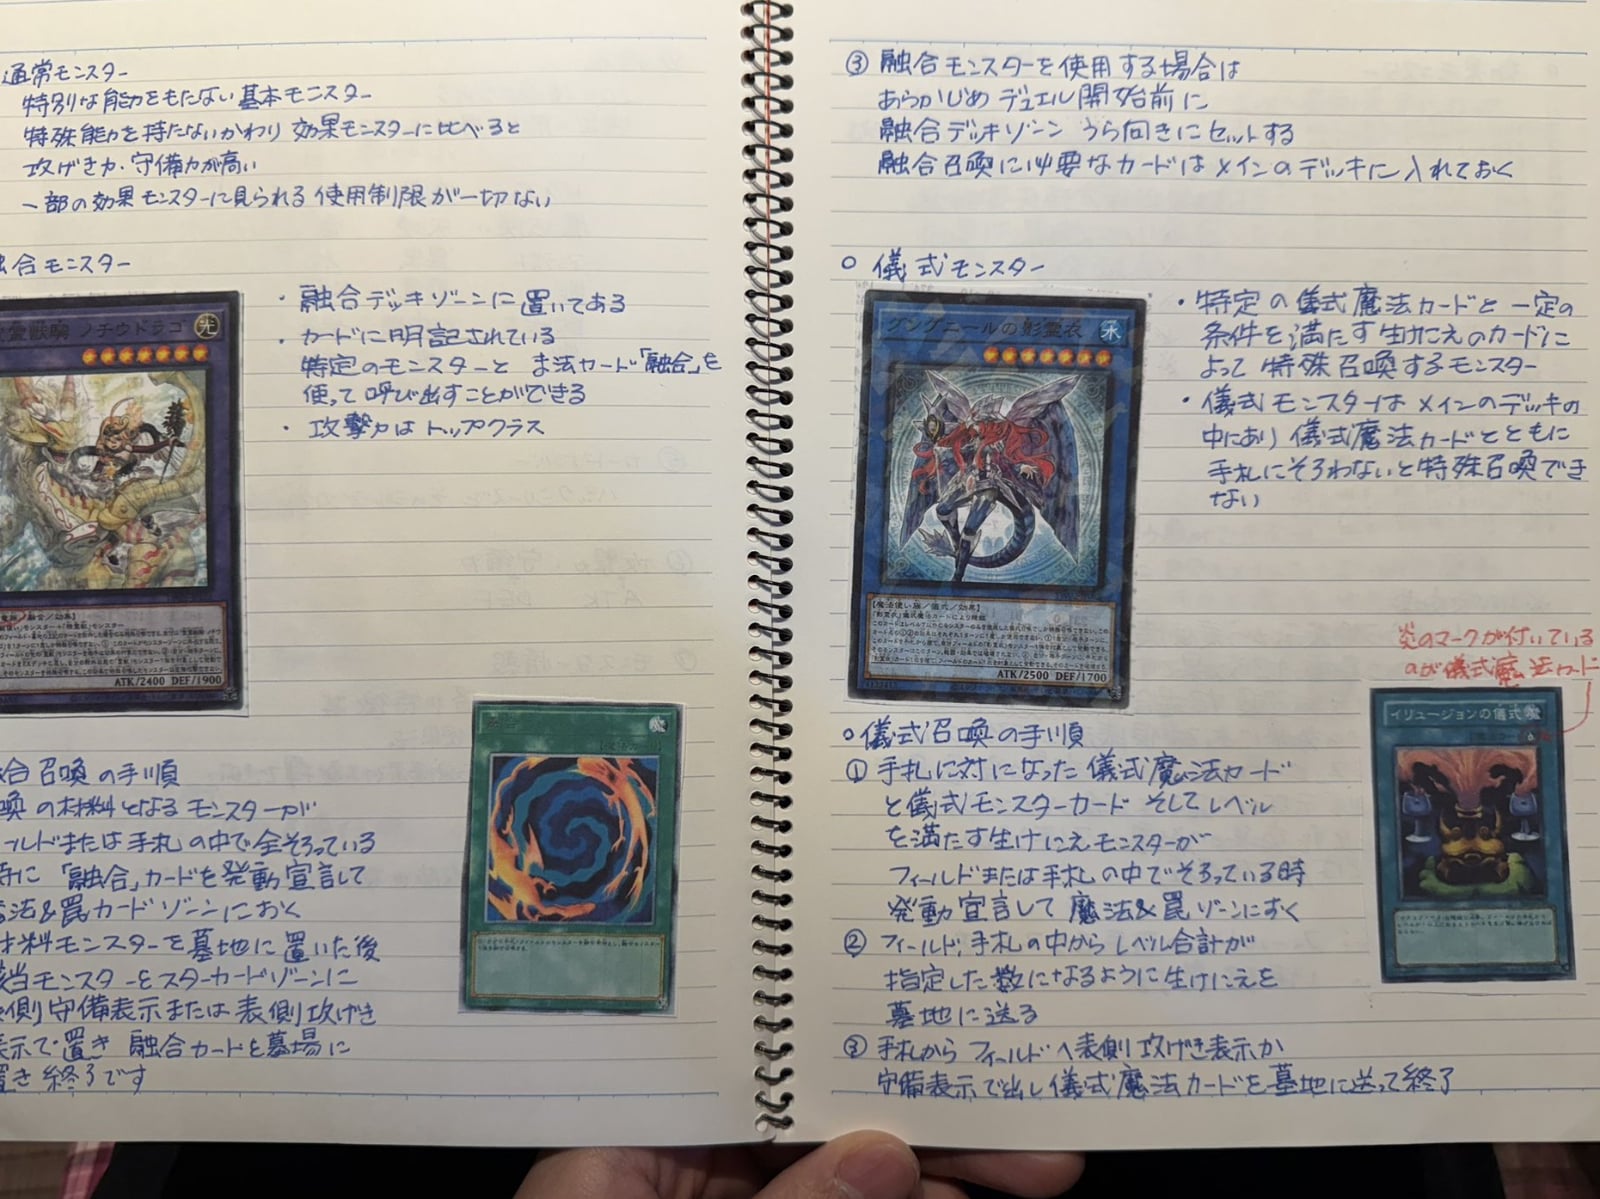 通常モンスター
特別な能力をもたない基本モンスター
特殊能力を持たないかわり 効果モンスターに比べると
攻げき力・守備力が高い
一部の効果モンスターに見られる 使用制限が一切ない
合モンスター
・融合デッキゾーンに置いてある
・カードに明記されている
特定のモンスターと ま法カード「融合」を
使って呼び出すことができる
・攻撃力はトップクラス
霊獣騎 ノチウドラゴ
光
ATK/2400 DEF/1900
合召喚の手順
喚の材料となるモンスターが
ールドまたは手札の中で全そろっている
時に「融合」カードを発動宣言して
法&罠カードゾーンにおく
材料モンスターを墓地に置いた後
当モンスターをスターカードゾーンに
側守備表示または表側攻げき
表示で置き 融合カードを墓場に
置き終了です
③ 融合モンスターを使用する場合は
あらかじめデュエル開始前に
融合デッキゾーン うら向きにセットする
融合召喚に必要なカードはメインのデッキに入れておく
○ 儀式モンスター
グングニールの影霊衣
水
【魔法使い族/儀式/効果】
ATK/2500 DEF/1700
・特定の儀式魔法カードと一定の
条件を満たす生けにえのカードに
よって特殊召喚するモンスター
・儀式モンスターはメインのデッキの
中にあり儀式魔法カードとともに
手札にそろわないと特殊召喚でき
ない
炎のマークが付いている
のが儀式魔法カード
イリュージョンの儀式
○儀式召喚の手順
① 手札に対になった儀式魔法カード
と儀式モンスターカード そしてレベル
を満たす生けにえモンスターが
フィールドまたは手札の中でそろっている時
発動宣言して魔法&罠ゾーンにおく
② フィールド,手札の中からレベル合計が
指定した数になるように生けにえを
墓地に送る
③ 手札からフィールドへ表側攻げき表示か
守備表示で出し儀式魔法カードを墓地に送って終了